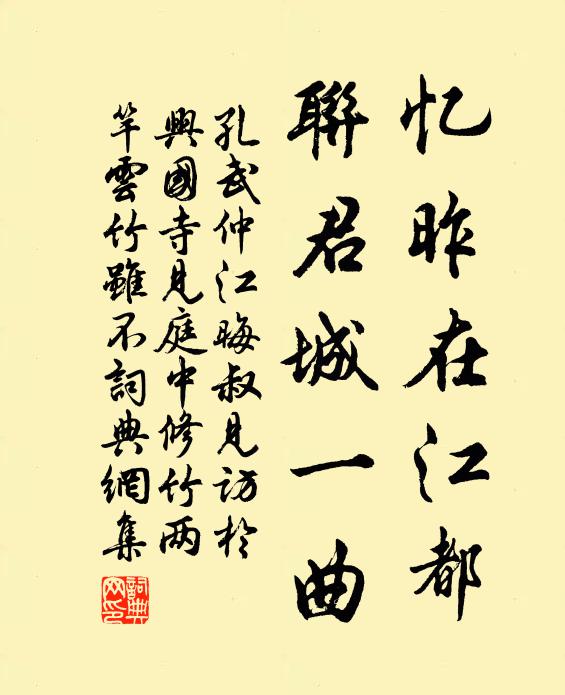 忆昨在江都
聯君城一曲
孔武仲江晦叔見访於
興國寺見庭中修竹两
竿雲竹雖不詞典網集
詞典网印